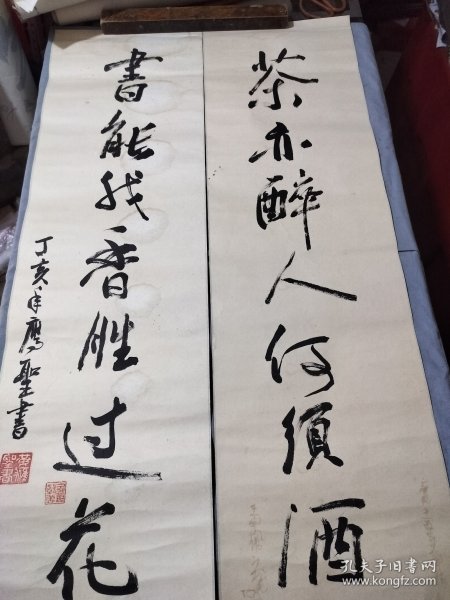 茶亦醉人何須酒
書能我香胜过花
丁亥年鹰聖書
孔夫子旧书网
www.kongfz.com